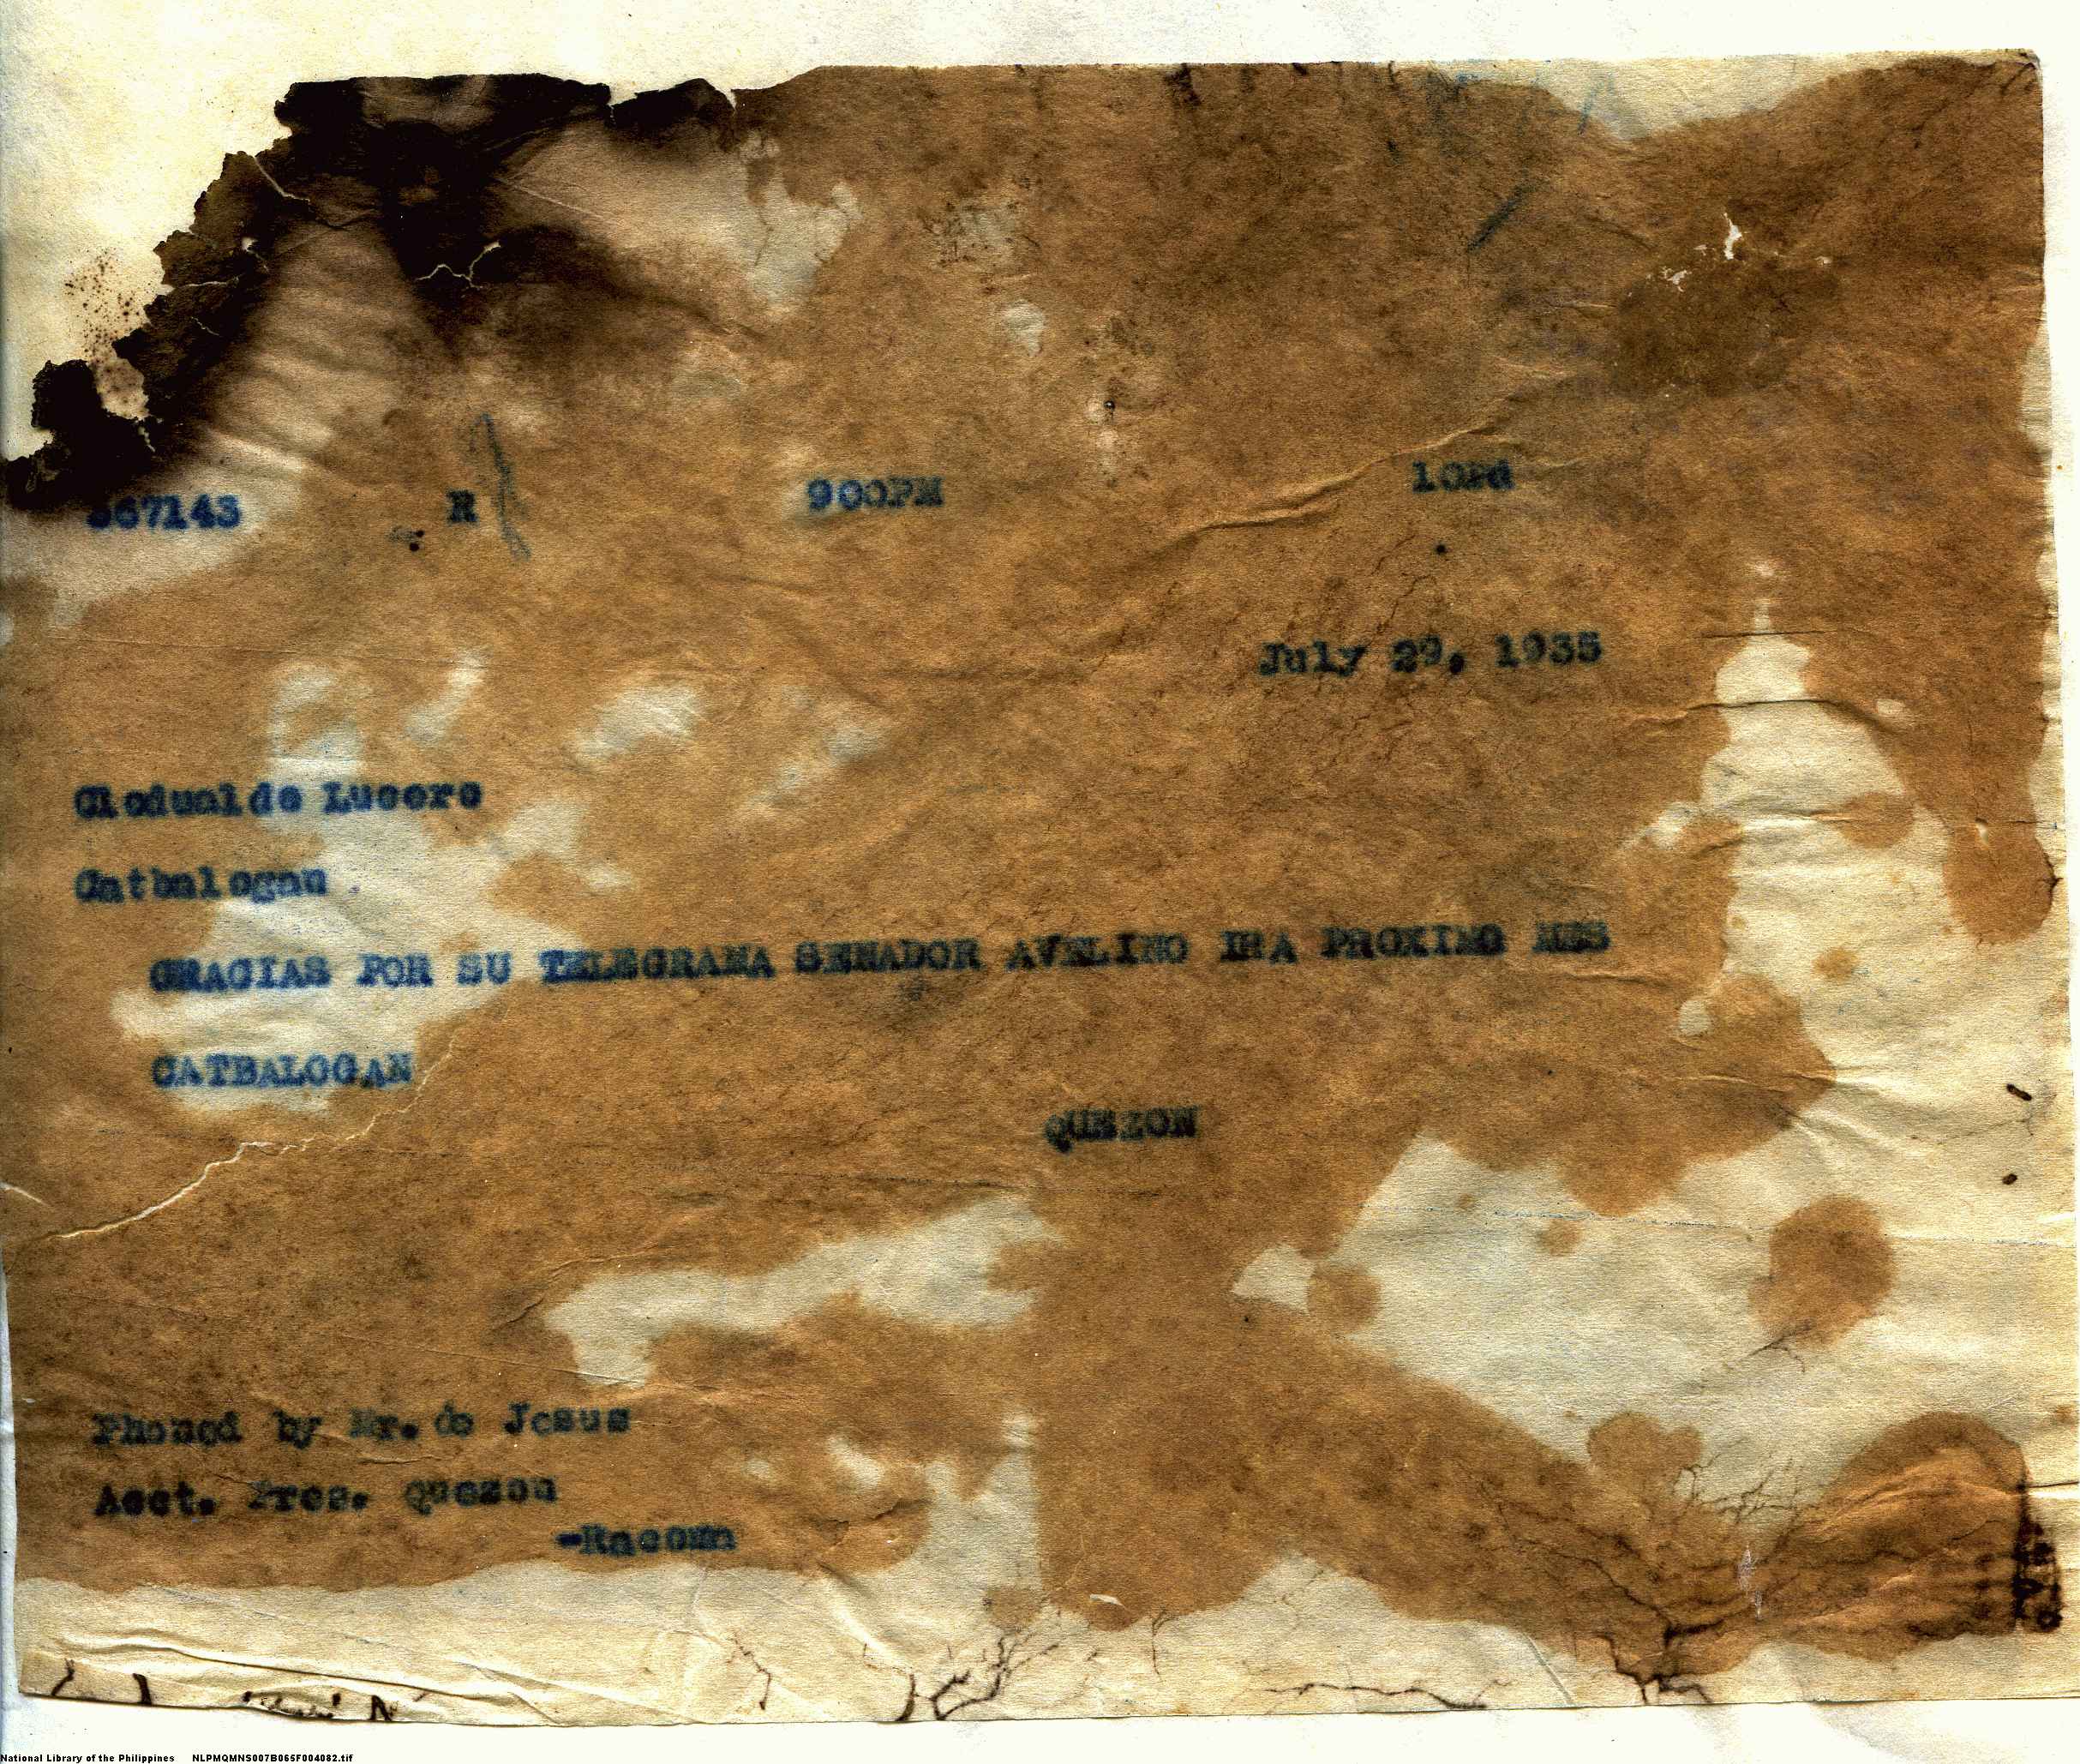 367143 R 900PM 10Pd
July 29, 1935
Clodualdo Lucero
Catbalogan
GRACIAS POR SU TELEGRAMA SENADOR AVELINO IRA PROXIMO MES
CATBALOGAN
QUEZON
Phoned by Mr. de Jesus
Acct. Pres. Quezon
-Racoma
National Library of the Philippines NLPMQMNS007B065F004082.tif